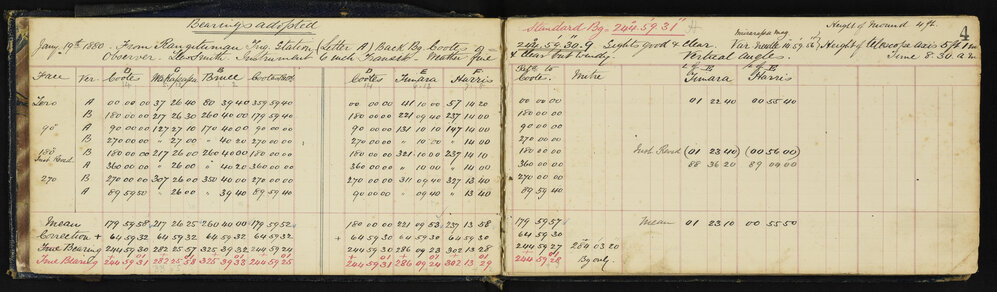 Bearings adopted
Standard Bg - 244.59.31"
Height of Mound 4 ft.
4
Jany 19th 1880. From Rangitumau Trig. Station (Letter A) Back Bg Cootes of -
244.59.30.9 Sights good & clear.
Observer. Instrument 6 inch Transit - Weather fine
& clear but windy
Vertical angles.
Time 8.30 a.m
Face Ver. Cootes Bruce Cootes Cootes Tinara Harris Cootes. Mike Tinara Harris
Zero A 00 00 00 37 26 40 80 39 40 359 59 40 00 00 00 41 10 00 57 14 20 00 00 00 01 22 40 00 55 40
B 180 00 00 217 26 30 260 40 00 179 59 40 180 00 00 221 09 40 237 14 00 180 00 00
90° A 90 00 00 127 27 10 170 40 00 90 00 00 90 00 00 131 10 10 147 14 00 90 00 00
B 270 00 00 " 27 00 " 40 20 270 00 00 270 00 00 " 10 00 " 14 00 270 00 00
180 B 180 00 00 217 26 00 260 40 00 180 00 00 180 00 00 321 10 00 237 14 10 180 00 00 Inst Revd (01 23 40) (00 56 00)
Inst. Revd. A 360 00 00 " 26 00 " 40 20 360 00 00 360 00 00 " 10 00 " 14 00 360 00 00 88 36 20 89 04 00
270 B 270 00 00 307 26 00 350 40 00 270 00 00 270 00 00 311 09 40 327 13 40 270 00 00
A 89 59 50 " 26 00 " 39 40 89 59 40 90 00 00 " 09 40 " 13 40 89 59 40
Mean 179 59 58 217 26 25 260 40 00 179 59 52 180 00 00 221 09 53 237 13 58 179 59 57 Mean 01 23 10 00 55 50
Correction + 64 59 32 64 59 32 64 59 32 64 59 32 + 64 59 30 64 59 30 64 59 30 64 59 30
True Bearing 244 59 30 282 25 57 325 39 32 244 59 24 244 59 30 286 09 23 302 13 28 244 59 27 284 03 20
True Bearing 244 59 31 282 25 58 325 39 33 244 59 25 244 59 31 286 09 24 302 13 29 244 59 28 Bg only.